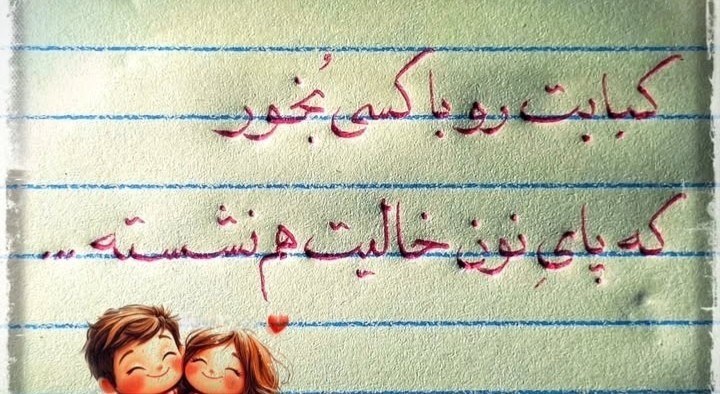 کبابت رو با کسی بُخور
که پایِ نون خالیت هم نشسته ...